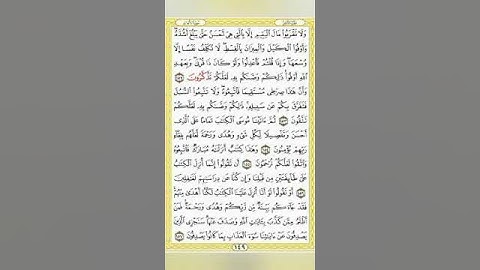 وَلَا تَقْرَبُوا۟ مَالَ ٱلْيَتِيمِ إِلَّا بِٱلَّتِى هِىَ أَحْسَنُ حَتَّىٰ يَبْلُغَ أَشُدَّهُۥ
وَأَوْفُوا۟ ٱلْكَيْلَ وَٱلْمِيزَانَ بِٱلْقِسْطِ لَا نُكَلِّفُ نَفْسًا إِلَّا
وُسْعَهَا وَإِذَا قُلْتُمْ فَٱعْدِلُوا۟ وَلَوْ كَانَ ذَا قُرْبَىٰ وَبِعَهْدِ
ٱللَّهِ أَوْفُوا۟ ذَٰلِكُمْ وَصَّىٰكُم بِهِۦ لَعَلَّكُمْ تَذَكَّرُونَ ١٥٢
وَأَنَّ هَٰذَا صِرَٰطِى مُسْتَقِيمًا فَٱتَّبِعُوهُ وَلَا تَتَّبِعُوا۟ ٱلسُّبُلَ
فَتَفَرَّقَ بِكُمْ عَن سَبِيلِهِۦ ذَٰلِكُمْ وَصَّىٰكُم بِهِۦ لَعَلَّكُمْ
تَتَّقُونَ ١٥٣ ثُمَّ ءَاتَيْنَا مُوسَى ٱلْكِتَٰبَ تَمَامًا عَلَى ٱلَّذِىٓ
أَحْسَنَ وَتَفْصِيلًا لِّكُلِّ شَىْءٍ وَهُدًى وَرَحْمَةً لَّعَلَّهُم بِلِقَآءِ
رَبِّهِمْ يُؤْمِنُونَ ١٥٤ وَهَٰذَا كِتَٰبٌ أَنزَلْنَٰهُ مُبَارَكٌ فَٱتَّبِعُوهُ
وَٱتَّقُوا۟ لَعَلَّكُمْ تُرْحَمُونَ ١٥٥ أَن تَقُولُوٓا۟ إِنَّمَآ أُنزِلَ ٱلْكِتَٰبُ
عَلَىٰ طَآئِفَتَيْنِ مِن قَبْلِنَا وَإِن كُنَّا عَن دِرَاسَتِهِمْ لَغَٰفِلِينَ
١٥٦ أَوْ تَقُولُوا۟ لَوْ أَنَّآ أُنزِلَ عَلَيْنَا ٱلْكِتَٰبُ لَكُنَّآ أَهْدَىٰ مِنْهُمْ
فَقَدْ جَآءَكُم بَيِّنَةٌ مِّن رَّبِّكُمْ وَهُدًى وَرَحْمَةٌ فَمَنْ
أَظْلَمُ مِمَّن كَذَّبَ بِـَٔايَٰتِ ٱللَّهِ وَصَدَفَ عَنْهَا سَنَجْزِى ٱلَّذِينَ
يَصْدِفُونَ عَنْ ءَايَٰتِنَا سُوٓءَ ٱلْعَذَابِ بِمَا كَانُوا۟ يَصْدِفُونَ ١٥٧
١٤٩